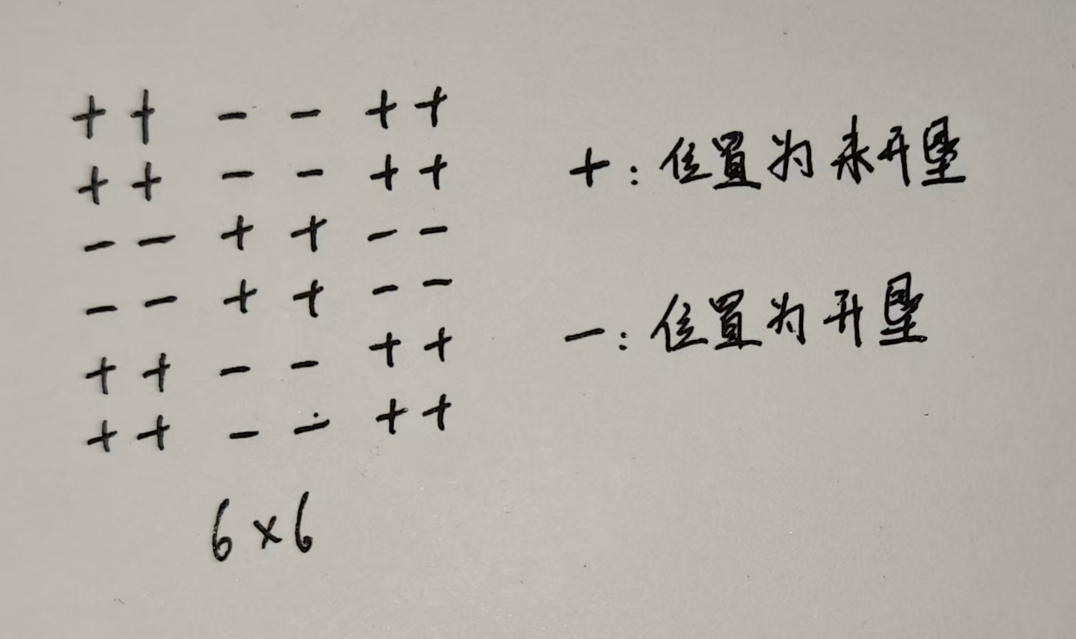 + + - - + +
+ + - - + +
- - + + - -
- - + + - -
+ + - - + +
+ + - - + +
6×6
+：位置为未开垦
-：位置为开垦